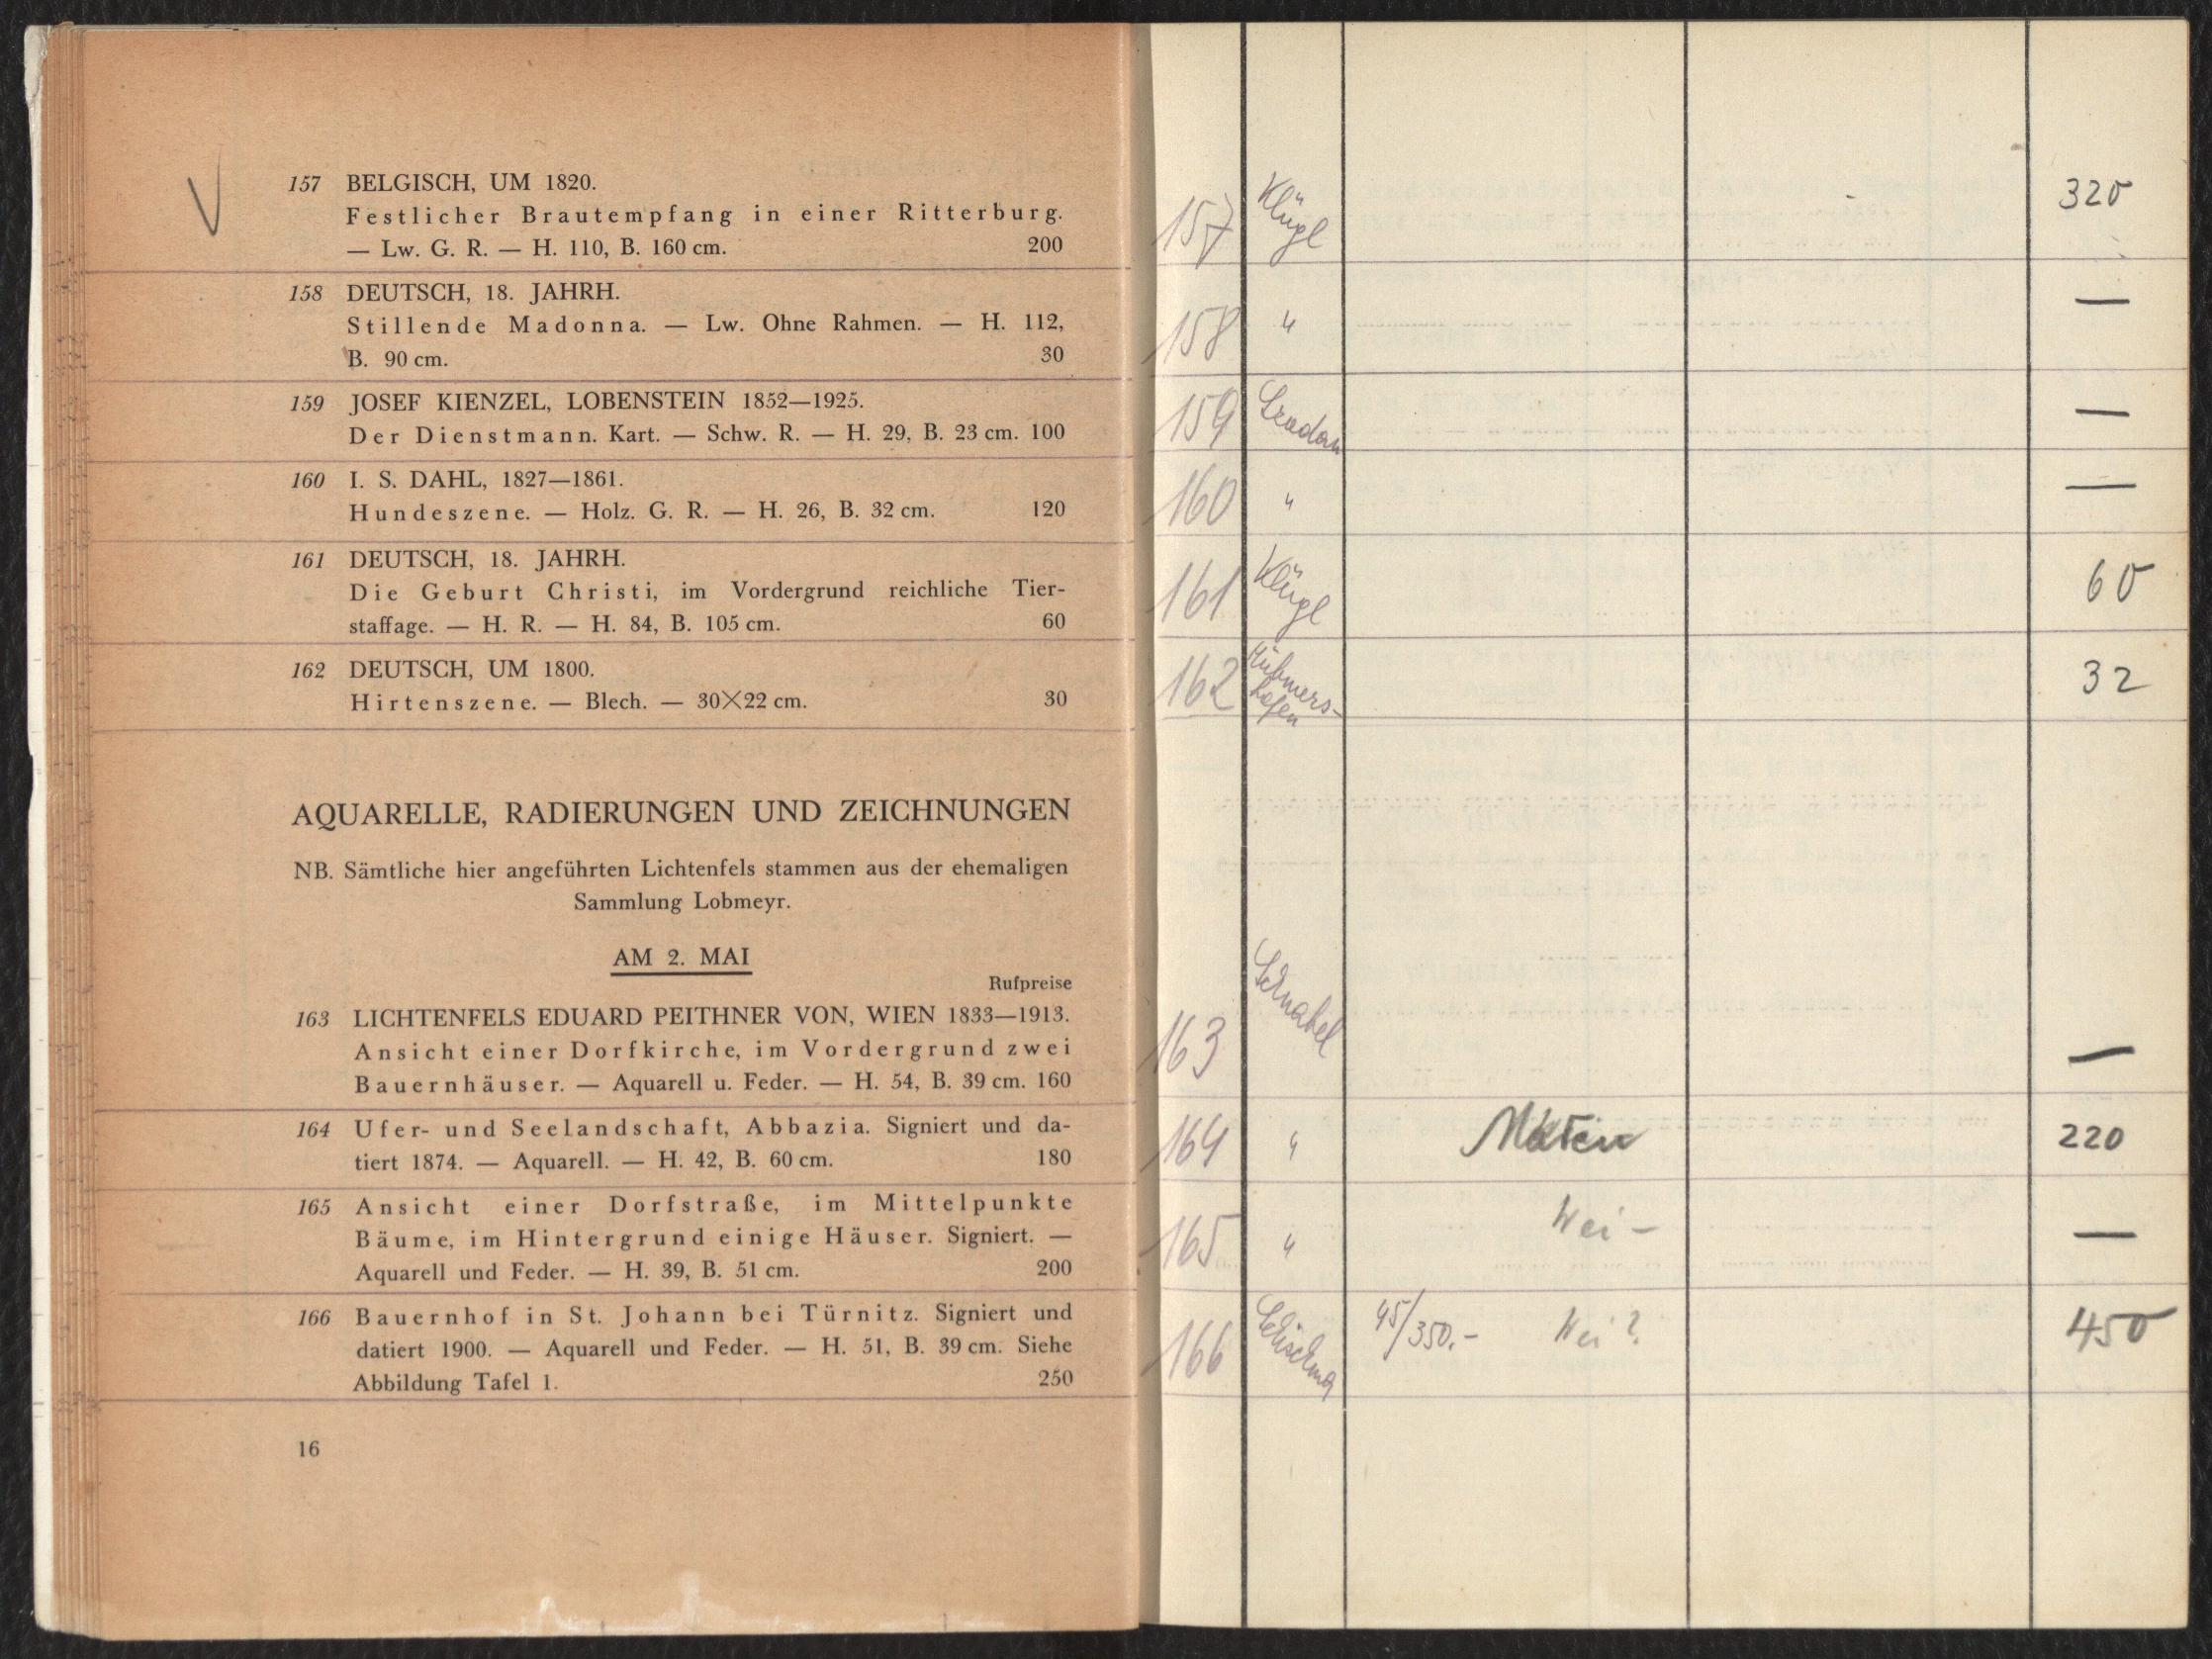 157 BELGISCH, UM 1820.
Festlicher Brautempfang in einer Ritterburg.
— Lw. G. R. — H. 110, B. 160 cm. 200
158 DEUTSCH, 18. JAHRH.
Stillende Madonna. — Lw. Ohne Rahmen. — H. 112,
B. 90 cm. 30
159 JOSEF KIENZEL, LOBENSTEIN 1852—1925.
Der Dienstmann. Kart. — Schw. R. — H. 29, B. 23 cm. 100
160 I. S. DAHL, 1827—1861.
Hundeszene. — Holz. G. R. — H. 26, B. 32 cm. 120
161 DEUTSCH, 18. JAHRH.
Die Geburt Christi, im Vordergrund reichliche Tier-
staffage. — H. R. — H. 84, B. 105 cm. 60
162 DEUTSCH, UM 1800.
Hirtenszene. — Blech. — 30×22 cm. 30
AQUARELLE, RADIERUNGEN UND ZEICHNUNGEN
NB. Sämtliche hier angeführten Lichtenfels stammen aus der ehemaligen
Sammlung Lobmeyr.
AM 2. MAI
Rufpreise
163 LICHTENFELS EDUARD PEITHNER VON, WIEN 1833—1913.
Ansicht einer Dorfkirche, im Vordergrund zwei
Bauernhäuser. — Aquarell u. Feder. — H. 54, B. 39 cm. 160
164 Ufer- und Seelandschaft, Abbazia. Signiert und da-
tiert 1874. — Aquarell. — H. 42, B. 60 cm. 180
165 Ansicht einer Dorfstraße, im Mittelpunkte
Bäume, im Hintergrund einige Häuser. Signiert. —
Aquarell und Feder. — H. 39, B. 51 cm. 200
166 Bauernhof in St. Johann bei Türnitz. Signiert und
datiert 1900. — Aquarell und Feder. — H. 51, B. 39 cm. Siehe
Abbildung Tafel 1. 250
16
157 Klügl 320
158 " —
159 —
160 " —
161 Klügl 60
162 32
163 Schnabel —
164 " 220
165 " Wei — —
166 45/350.- Wei ? 450